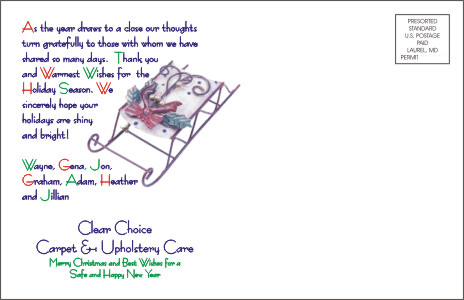 As the year draws to a close our thoughts
turn gratefully to those with whom we have
shared so many days. Thank you
and Warmest Wishes for the
Holiday Season. We
sincerely hope your
holidays are shiny
and bright!
Wayne, Gena, Jon,
Graham, Adam, Heather
and Jillian
Clear Choice
Carpet & Upholstery Care
Merry Christmas and Best Wishes for a
Safe and Happy New Year
PRESORTED
STANDARD
U.S. POSTAGE
PAID
LAUREL, MD
PERMIT